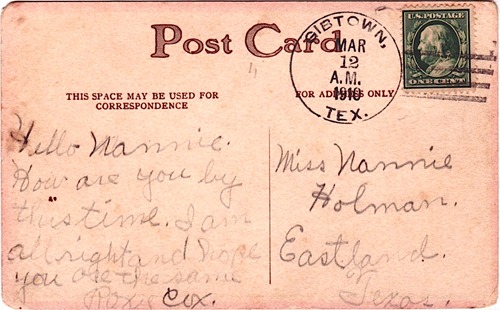 Post Card
THIS SPACE MAY BE USED FOR
CORRESPONDENCE
FOR ADDRESS ONLY
BIBTOWN,
MAR
12
A.M.
1910
TEX.
U.S. POSTAGE
ONE CENT
Hello Nannie.
How are you by
this time. I am
all right and hope
you are the same
Cox.
Miss Nannie
Holman.
Eastland.
Texas.